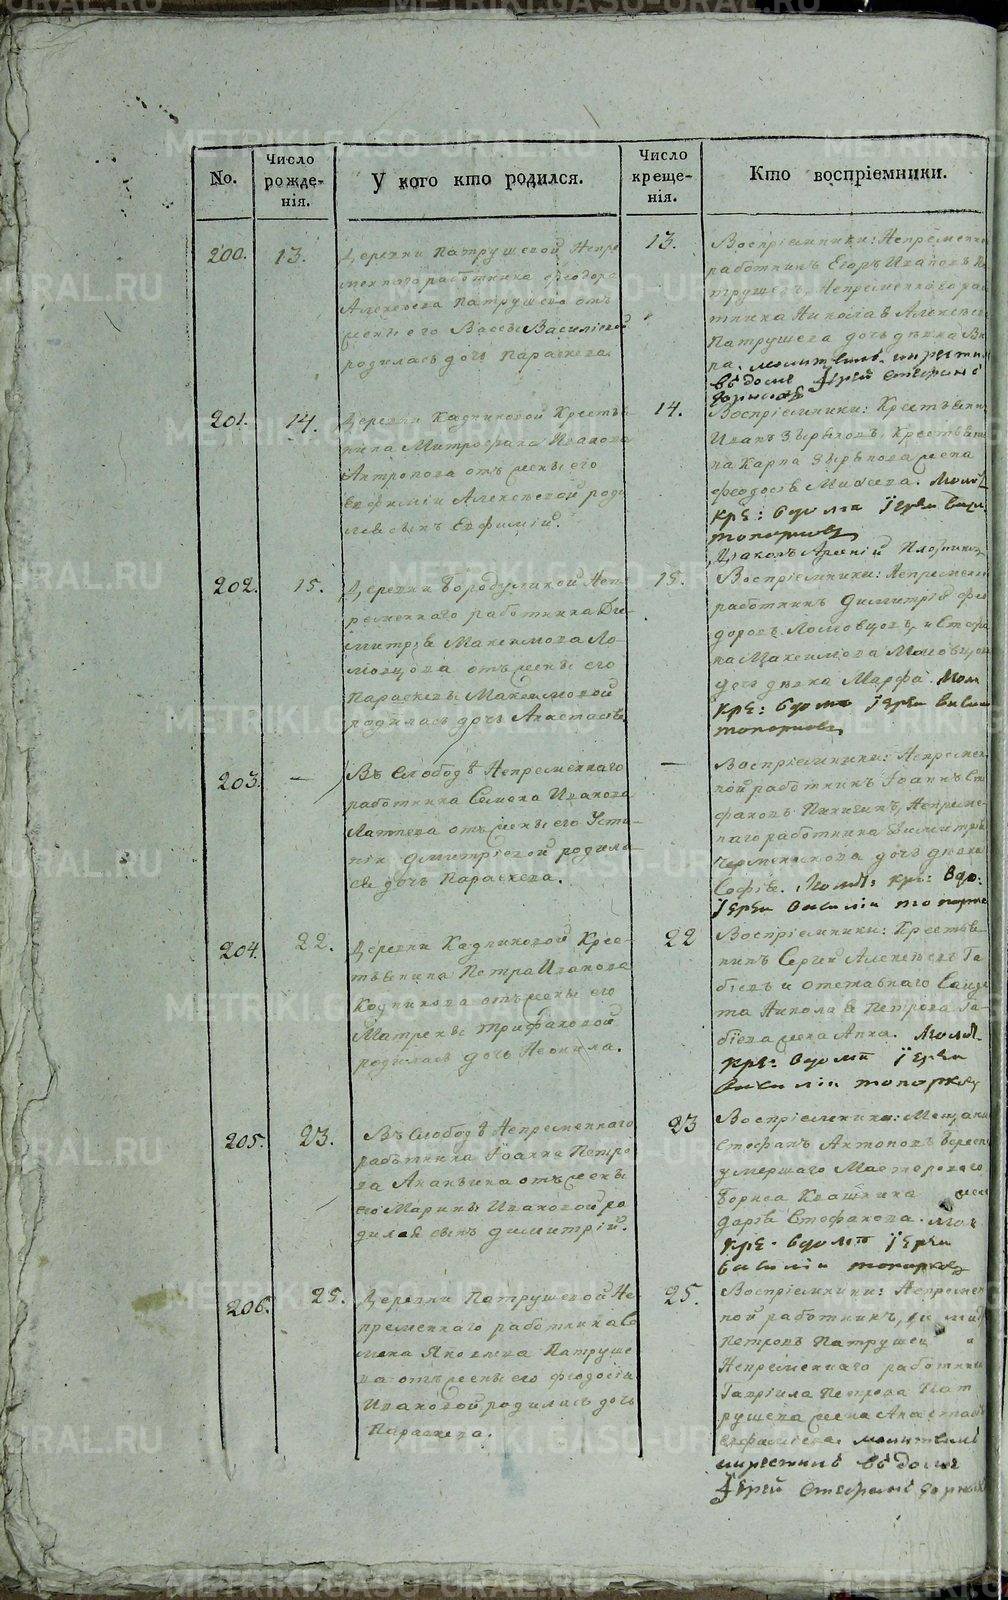 No.
Число рожде-нія.
У кого кто родился.
Число креще-нія.
Кто воспріемники.
200.
13.
Деревни Патрушевой Непре
меннаго работника Феодора
Алексеева Патрушева отъ
жены его Вассы Васильевой
родилась дочь Параскева.
13.
Воспріемники: Непременной
работникъ Егоръ Ивановъ Па
трушевъ, Непременнаго рабо
тника Николая Алексеева
Патрушева дочь девка
молитвилъ и крестилъ
въ доме Іерей Стефанъ
201.
14.
Деревни Кадниковой Кресть
янина Митрофана Иванова
Антропова отъ жены его
Евфиміи Алексеевой роди
лся сынъ Евфимій.
14.
Воспріемники: Крестьянинъ
Иванъ Зыряновъ, Крестьяни
на Карпа Зырянова жена
Феодосья Михеева. Молит:
кре: вдоме Іерей Васи
топорковъ
Дьаконъ Арсеній Плотников
202.
15.
Деревни Бородулиной Неп
ременнаго работника Ди
митрія Максимова Ло
мовцова отъ жены его
Параскевы Максимовой
родилась дочь Анастасія.
15.
Воспріемники: Непременной
работникъ Димитрій Фео
доровъ Ломовцовъ, и Стефа
на Максимова Ломовцова
дочь девка Марфа. Мол
кре: вдоме Іерей Васил
топорковъ
203.
—
Въ Слободе Непременнаго
работника Симона Иванова
Лаптева отъ жены его Усти
ніи Дмитріевой родила
ся дочь Параскева.
—
Воспріемники: Непремен
ной работникъ Іоаннъ Сте
фановъ Пинигинъ, Непреме
ннаго работника Димитрія
дочь девка
Софія. Молит: кре: вдо:
Іерей Василій топорко
204.
22.
Деревни Кадниковой Крес
тьянина Петра Иванова
Кадникова отъ жены его
Матрены Трифановой
родилась дочь Неонила.
22
Воспріемники: Крестья
нинъ Сергей Алексеевъ Га
біевъ и отставнаго Солда
та Николая Петрова Га
біева жена Анна. Молит.
кре: вдоме Іерей
Василій топорковъ
205.
23.
Въ Слободе Непременнаго
работника Іоанна Петро
ва Ананьина отъ жены
его Марины Ивановой ро
дился сынъ Димитрій.
23
Воспріемники: Мещанинъ
Стефанъ Антоновъ
умершаго Мастероваго
Бориса Квашнина жен
Дарія Стефанова. Мол
кре. вдоме Іерей
Василій топорковъ
206.
25.
Деревни Патрушевой Не
пременнаго работника Се
мена Яковлева Патруше
ва отъ жены его Феодосіи
Ивановой родилась дочь
Параскева.
25.
Воспріемники: Непремен
ной работникъ,
Петровъ Патрушев и
Непременнаго работника
Гавріила Петрова Пат
рушева жена Анастасія
молитвилъ
икрестилъ въ доме
Іерей Стефанъ